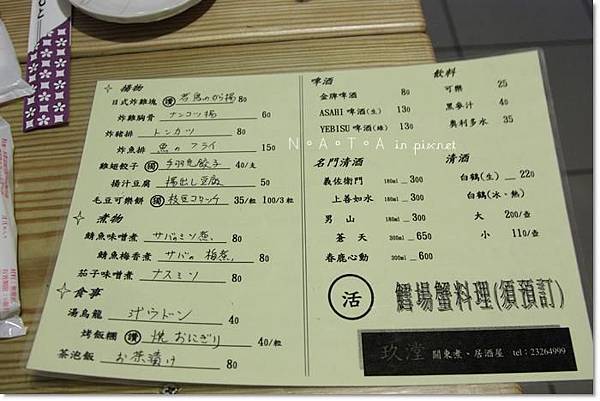 揚物
日式炸雞塊 讚 若鳥のから揚 80
炸雞胸骨 ナンコツ揚 60
炸豬排 トンカツ
炸魚排 魚のフライ 150
雞翅餃子 獨 手羽先餃子 40/支
揚汁豆腐 揚出し豆腐 50
毛豆可樂餅 獨 枝豆コロッケ 35/粒 100/3粒
煮物
鯖魚味噌煮 サバのミソ煮. 80
鯖魚梅香煮 サバの梅煮. 80
茄子味噌煮 ナスミソ 80
食事
湯烏龍 40
烤飯糰 讚 焼おにぎり 40/粒
茶泡飯 お茶漬け 80
啤酒
金牌啤酒 80
ASAHI 啤酒(生) 130
YEBISU 啤酒(罐) 130
飲料
可樂 25
黑麥汁 40
奧利多水 35
N。A。T。A in pixnet
名門清酒
義佐衛門 180ml 300
上善如水 180ml 300
男山 180ml 300
蒼天 300ml 650
春鹿心動 300ml 600
清酒
白鶴(生) 220
白鶴(冰、熱)
大 200/壺
小 110/壺
活 鱈場蟹料理(須預訂)
玖瀅 關東煮、居酒屋 tel:23264999